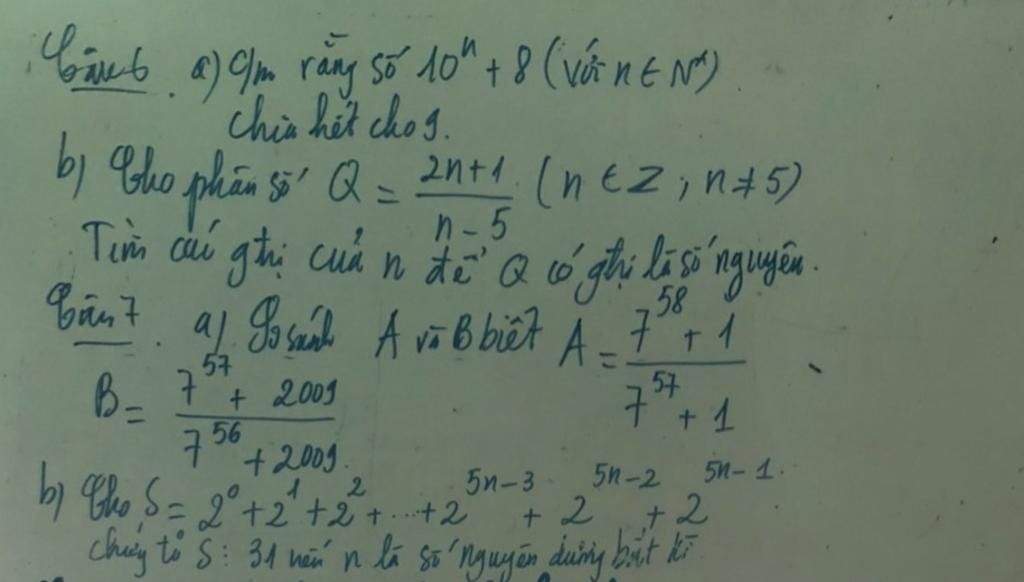 Câu 6. a) C/m rằng số 10^n + 8 (với n ∈ N*)
chia hết cho 9.
b) Cho phân số Q = \frac{2n+1}{n-5} (n ∈ Z ; n ≠ 5)
Tìm các gtrị của n để Q có gtrị là số nguyên.
Câu 7. a) So sánh A và B biết A = \frac{7^{58} + 1}{7^{57} + 1}
B = \frac{7^{57} + 2009}{7^{56} + 2009}.
b) Cho S = 2^0 + 2^1 + 2^2 + ... + 2^{5n-3} + 2^{5n-2} + 2^{5n-1}.
chứng tỏ S ⋮ 31 nếu n là số nguyên dương bất kì